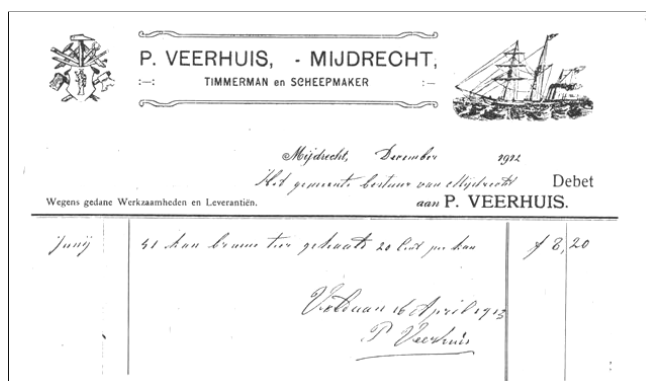 P. VEERHUIS, - MIJDRECHT,
:—: TIMMERMAN en SCHEEPMAKER :—
Mijdrecht, December 1912
Het gemeente bestuur van Mijdrecht Debet
Wegens gedane Werkzaamheden en Leverantiën. aan P. VEERHUIS.
Junij 41 kan bruine teer gehaald 20 Cent per kan f 8,20
Voldaan 16 April 1913
P Veerhuis